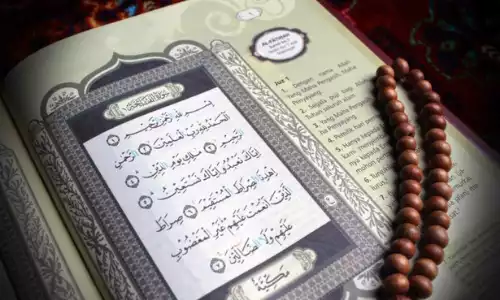 سورة الفاتحة
بِسْمِ اللَّهِ الرَّحْمَٰنِ الرَّحِيمِ ١
الْحَمْدُ لِلَّهِ رَبِّ الْعَالَمِينَ ٢ الرَّحْمَٰنِ
الرَّحِيمِ ٣ مَالِكِ يَوْمِ الدِّينِ ٤
إِيَّاكَ نَعْبُدُ وَإِيَّاكَ نَسْتَعِينُ ٥
اهْدِنَا الصِّرَاطَ الْمُسْتَقِيمَ ٦ صِرَاطَ
الَّذِينَ أَنْعَمْتَ عَلَيْهِمْ غَيْرِ الْمَغْضُوبِ
عَلَيْهِمْ وَلَا الضَّالِّينَ ٧
مكية
AL-FATIHAH
Juz 1
1. Dengan nama Allah
Yang Maha Pengasih, Maha
Penyayang.
2. Segala puji bagi Allah,
Tuhan seluruh alam,
3. Yang Maha Pengasih, Maha
Penyayang,
4. Pemilik hari
5. Hanya kepada